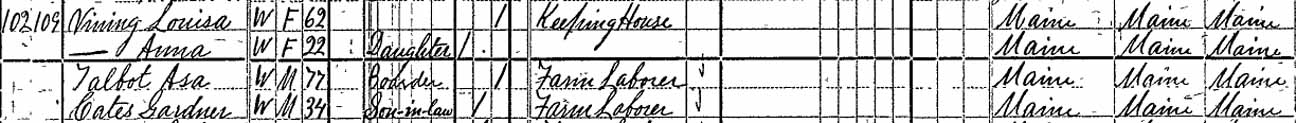 102 109 Vining Louisa W F 62 1 Keeping House Maine Maine Maine
— Anna W F 22 Daughter 1 Maine Maine Maine
Talbot Asa W M 77 Boarder 1 Farm Laborer Maine Maine Maine
Cates Gardner W M 34 Son-in-law 1 Farm Laborer Maine Maine Maine